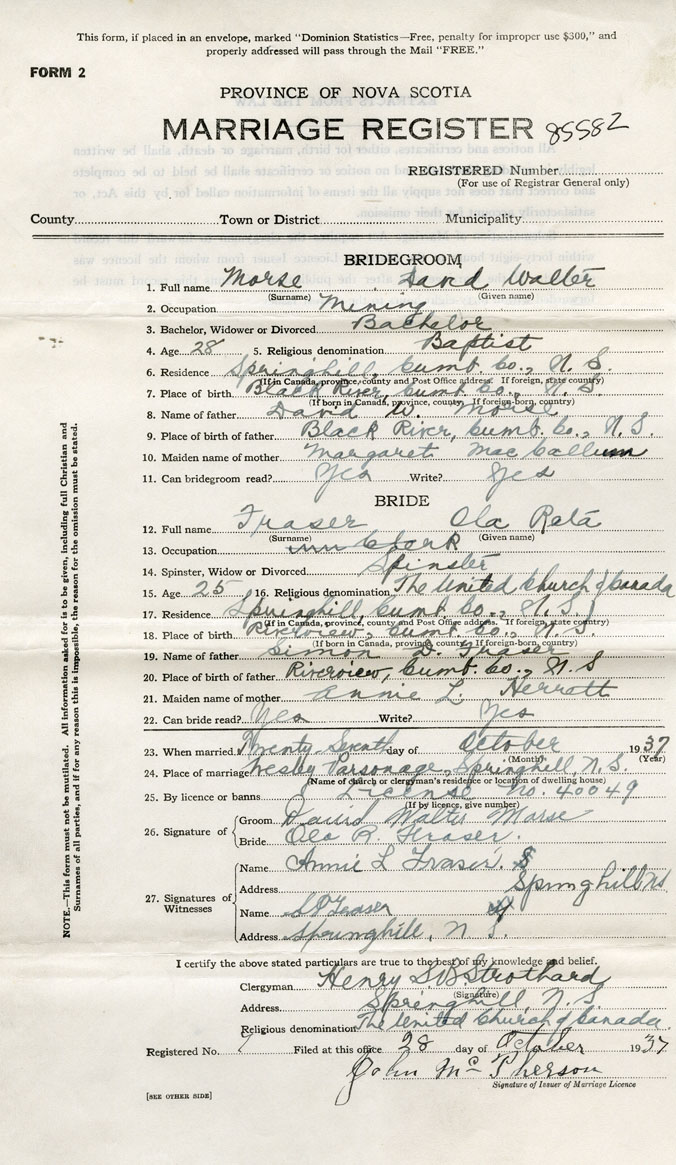 This form, if placed in an envelope, marked "Dominion Statistics—Free, penalty for improper use $300," and
properly addressed will pass through the Mail "FREE."
FORM 2
PROVINCE OF NOVA SCOTIA
MARRIAGE REGISTER 85582
REGISTERED Number
(For use of Registrar General only)
County Town or District Municipality
BRIDEGROOM
1. Full name Morse, David Walter
(Surname) (Given name)
2. Occupation Mining
3. Bachelor, Widower or Divorced Bachelor
4. Age 28 5. Religious denomination Baptist
6. Residence Springhill, Cumb. Co., N. S.
(If in Canada, province, county and Post Office address. If foreign, state country)
7. Place of birth Black River, Cumb. Co., N. S.
(If born in Canada, province, county, If foreign-born, country)
8. Name of father David W. Morse
9. Place of birth of father Black River, Cumb. Co., N. S.
10. Maiden name of mother Margaret MacCallum
11. Can bridegroom read? Yes Write? Yes
BRIDE
12. Full name Fraser Ola Reta
(Surname) (Given name)
13. Occupation Clerk
14. Spinster, Widow or Divorced Spinster
15. Age 25 16. Religious denomination The United Church of Canada
17. Residence Springhill, Cumb. Co., N. S.
(If in Canada, province, county and Post Office address. If foreign, state country)
18. Place of birth Riverview, Cumb. Co., N. S.
(If born in Canada, province, county. If foreign-born, country)
19. Name of father Simon D. Fraser
20. Place of birth of father Riverview, Cumb. Co., N. S
21. Maiden name of mother Annie L. Herrett
22. Can bride read? Yes Write? Yes
23. When married Twenty Seventh day of October 1937
(Month) (Year)
24. Place of marriage Wesley Parsonage, Springhill, N. S.
(Name of church or clergyman's residence or location of dwelling house)
25. By licence or banns License No. 40049
(If by licence, give number)
26. Signature of Groom David Walter Morse
Bride Ola R. Fraser.
27. Signatures of Witnesses
Name Annie L Fraser.
Address Springhill NS
Name Fraser
Address Springhill, N S.
I certify the above stated particulars are true to the best of my knowledge and belief.
Clergyman Henry Strothard
(Signature)
Address Springhill, N. S
Religious denomination The United Church of Canada.
Registered No. 7 Filed at this office 28 day of October 1937
John McPherson
Signature of Issuer of Marriage Licence
[SEE OTHER SIDE]
NOTE.—This form must not be mutilated. All information asked for is to be given, including full Christian and
Surnames of all parties, and if for any reason this is impossible, the reason for the omission must be stated.